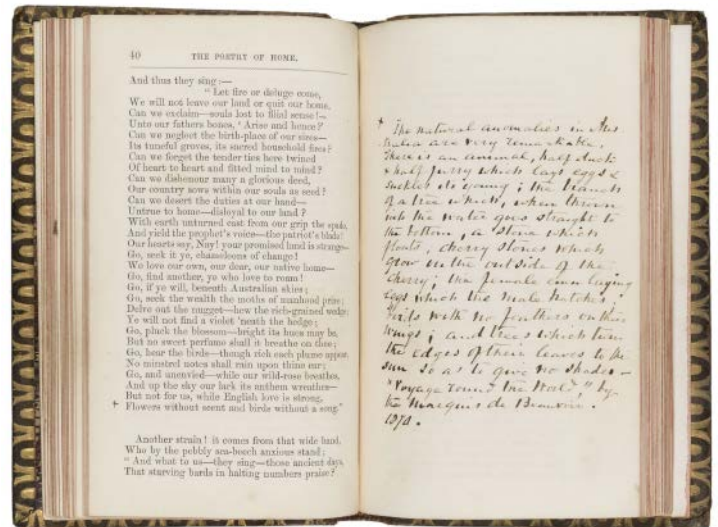 40 THE POETRY OF HOME.
And thus they sing:—
"Let fire or deluge come,
We will not leave our land or quit our home.
Can we exclaim—souls lost to filial sense!—
Unto our fathers bones, 'Arise and hence?'
Can we neglect the birth-place of our sires—
Its tuneful groves, its sacred household fires?
Can we forget the tender ties here twined
Of heart to heart and fitted mind to mind?
Can we dishonour many a glorious deed,
Our country sows within our souls as seed?
Can we desert the duties at our hand—
Untrue to home—disloyal to our land?
With earth unturned cast from our grip the spade,
And yield the prophet's voice—the patriot's blade?
Our hearts say, Nay! your promised land is strange—
Go, seek it ye, chameleons of change!
We love our own, our dear, our native home—
Go, find another, ye who love to roam!
Go, if ye will, beneath Australian skies;
Go, seek the wealth the moths of manhood prize;
Delve out the nugget—hew the rich-grained wedge;
Ye will not find a violet 'neath the hedge;
Go, pluck the blossom—bright its hues may be,
But no sweet perfume shall it breathe on thee;
Go, hear the birds—though rich each plume appear,
No minstrel notes shall rain upon thine ear;
Go, and unenvied—while our wild-rose breathes,
And up the sky our lark its anthem wreathes—
But not for us, while English love is strong,
+ Flowers without scent and birds without a song."
Another strain! it comes from that wide land.
Who by the pebbly sea-beech anxious stand;
"And what to us—they sing—those ancient days,
That starving bards in halting numbers praise?
+ The natural anomalies in Aus
tralia are very remarkable.
There is an animal, half duck
& half furry which lays eggs &
suckles its young; the branch
of a tree which, when thrown
into the water goes straight to
the bottom, a stone which
floats, cherry stones which
grow on the outside of the
cherry; the female emu laying
eggs which the male hatches;
birds with no feathers on their
wings; and trees which turn
the edges of their leaves to the
sun so as to give no shade—
"Voyage round the World" by
the Marquis de Beauvoir.
1870.